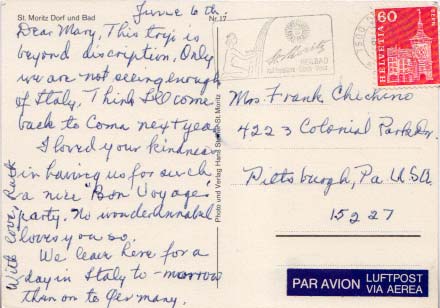 St. Moritz Dorf und Bad
Nr. 17
June 6th.
Dear Mary, This trip is
beyond discription. Only
we are not seeing enough
of Italy. Think I'll come
back to Coma next year.
I loved your kindness
in having us for such
a nice "Bon Voyage"
party. No wonder Annabel
loves you so.
We leave here for a
day in Italy to-morrow
then on to Germany.
With love, Ruth
Photo und Verlag Hans St. Moritz
St. Moritz
HEILBAD
60
HELVETIA
BERN
Mrs. Frank Chichino
4223 Colonial Park Dr.
Pittsburgh, Pa USA
15227
PAR AVION
LUFTPOST
VIA AEREA